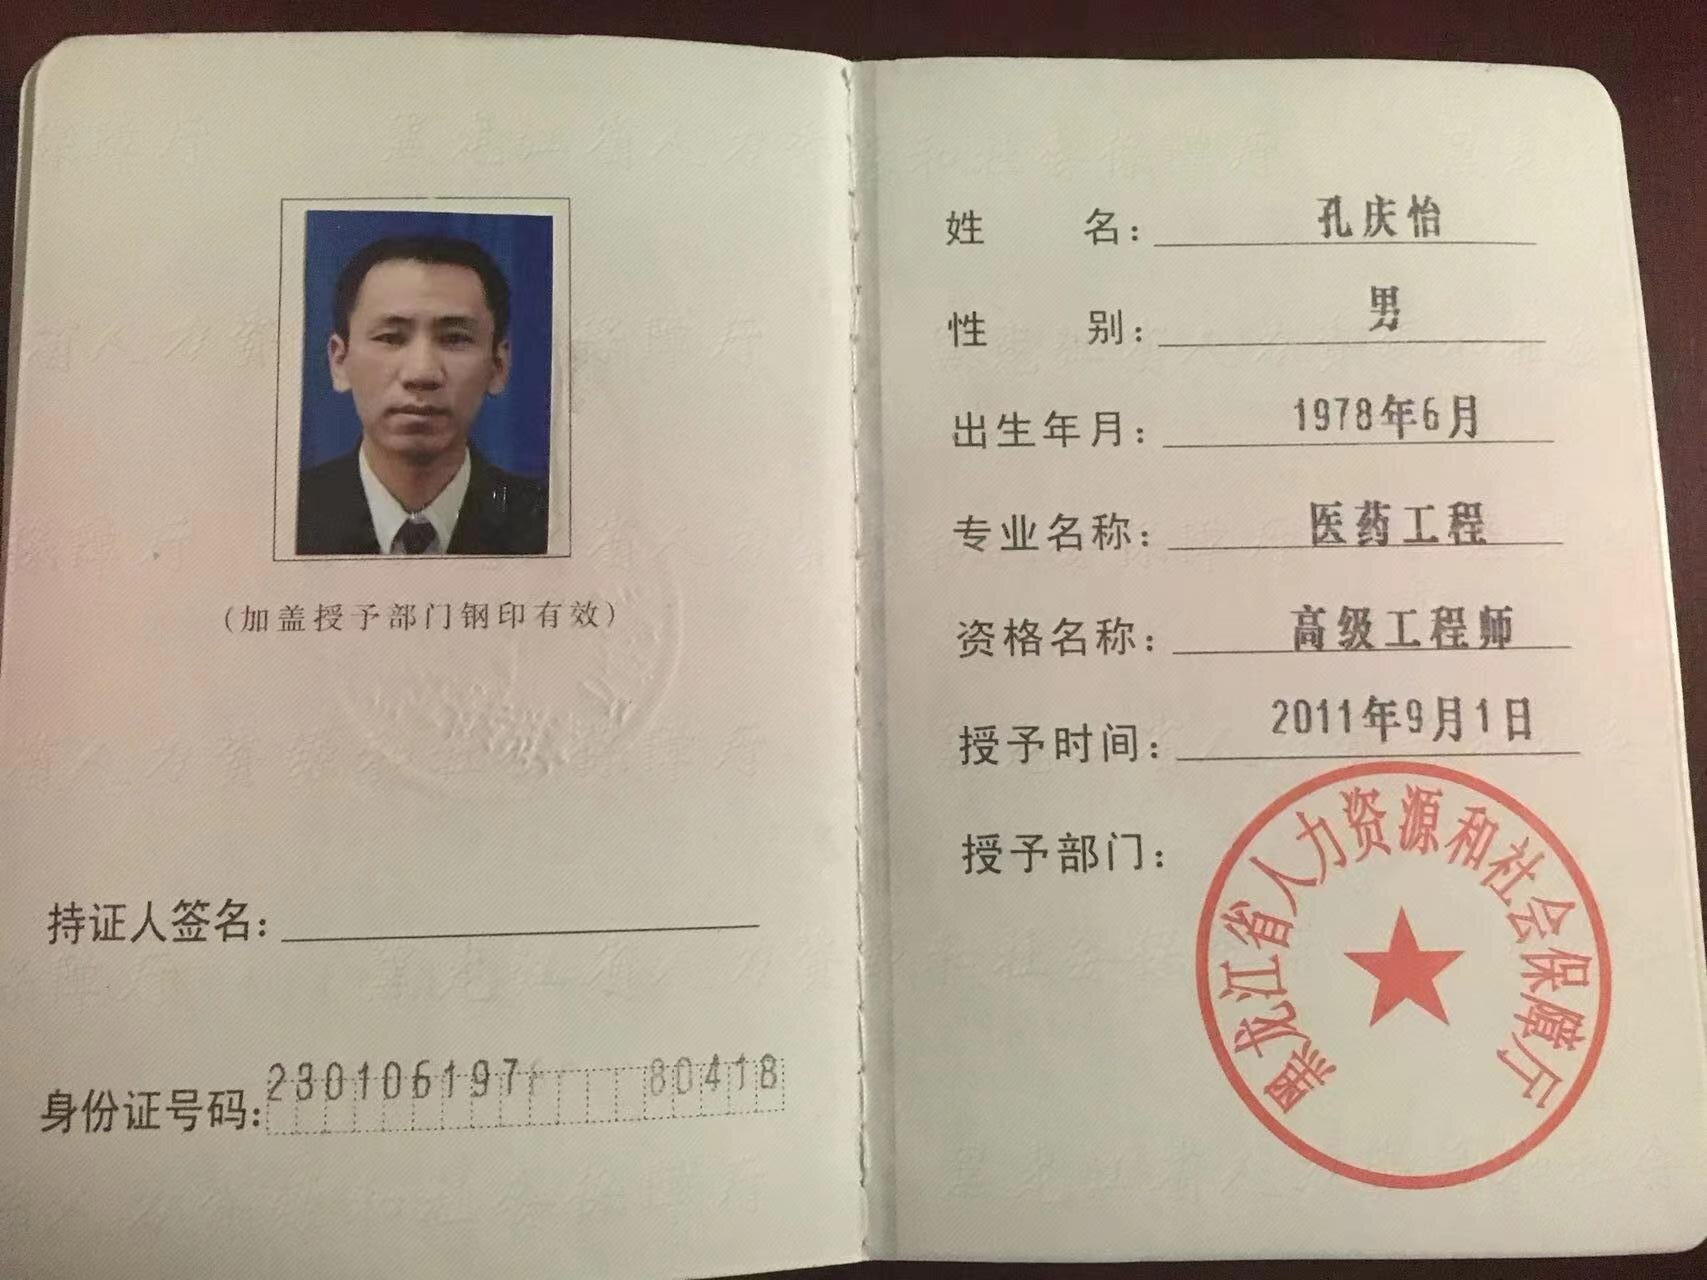 (加盖授予部门钢印有效)
持证人签名:
身份证号码: 230106197 80418
姓 名: 孔庆怡
性 别: 男
出生年月: 1978年6月
专业名称: 医药工程
资格名称: 高级工程师
授予时间: 2011年9月1日
授予部门:
黑龙江省人力资源和社会保障厅